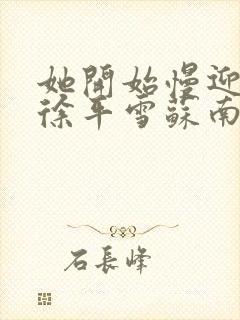 她開始慢迎
徐平雪蘇南
石長峰